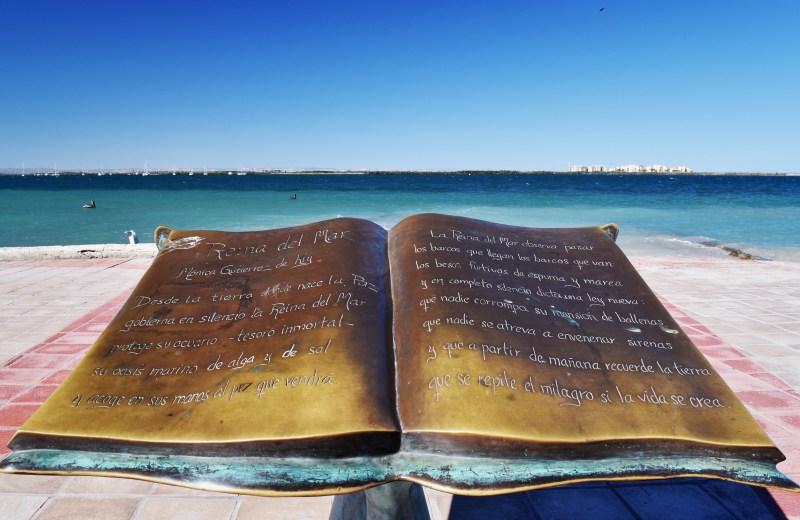 Reina del Mar
Mónica Gutiérrez de
Desde la tierra donde nace la Paz
gobierna en silencio la Reina del Mar
protege su acuario, -tesoro inmortal-
su oasis marino de alga y de sal
y acoge en sus manos al pez que vendrá.
La Reina del Mar observa pasar
los barcos que llegan los barcos que van.
los besos furtivos de espuma y marea
y en completo silencio dicta una ley nueva:
que nadie corrompa su mansión de ballenas
que nadie se atreva a envenenar sirenas
y que a partir de mañana recuerde la tierra
que se repite el milagro si la vida se crea.